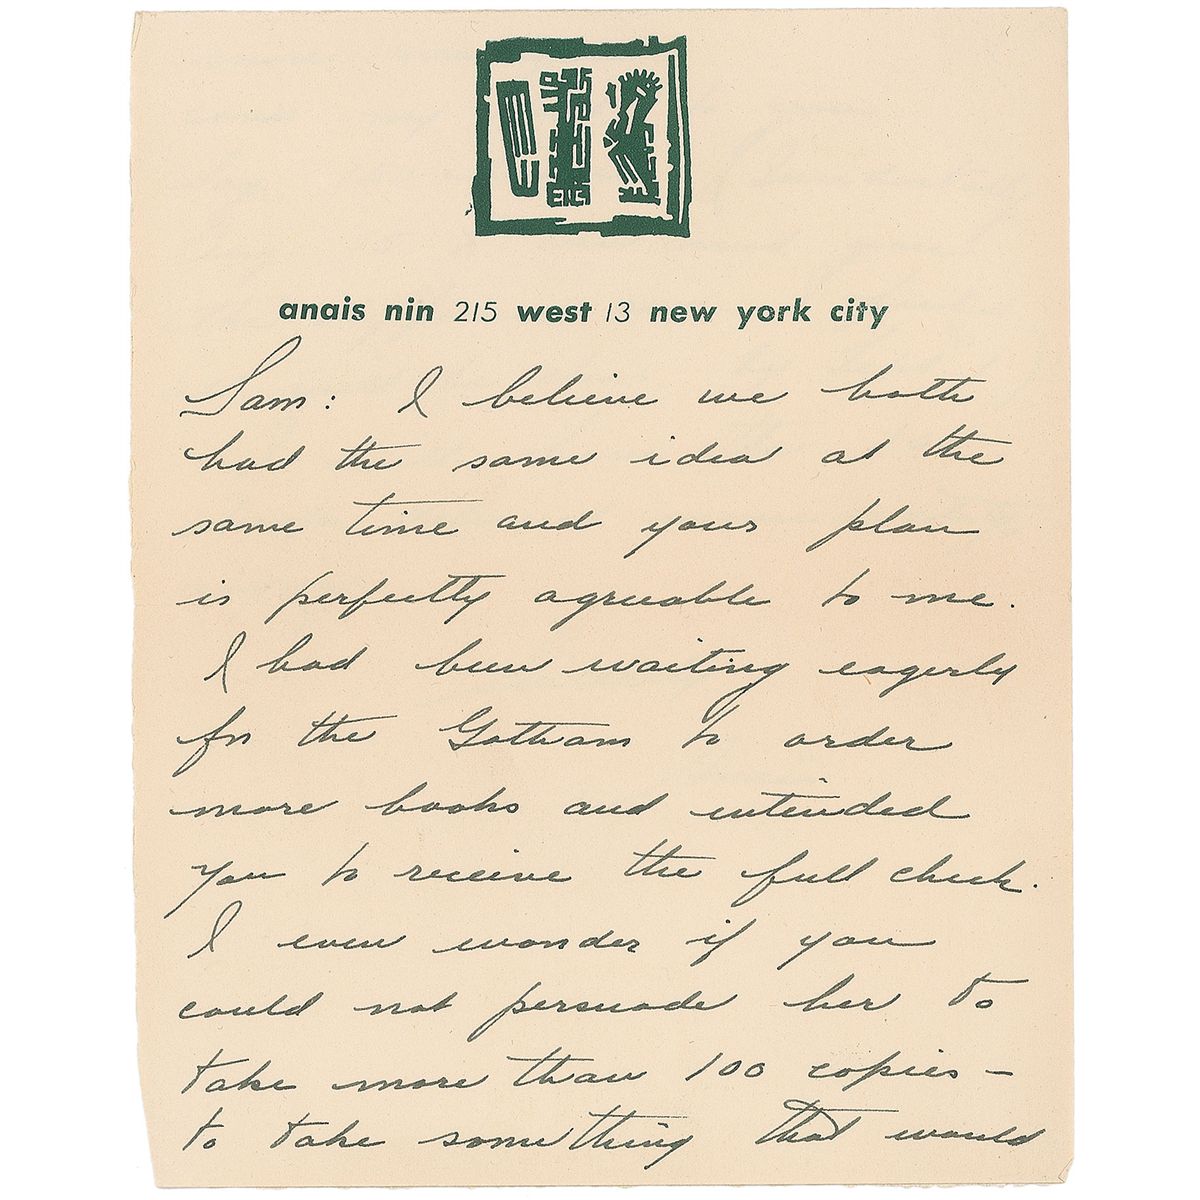 anais nin 215 west 13 new york city
Sam: I believe we both
had the same idea at the
same time and your plan
is perfectly agreeable to me.
I had been waiting eagerly
for the Gotham to order
more books and intended
you to receive the full check.
I even wonder if you
could not persuade her to
take more than 100 copies –
to take something that would